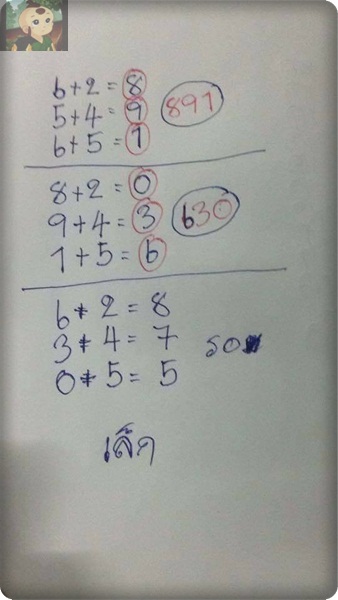 6+2=8
5+4=9
6+5=1
891
8+2=0
9+4=3
1+5=6
630
6+2=8
3+4=7
0+5=5
รอ
เล็ก